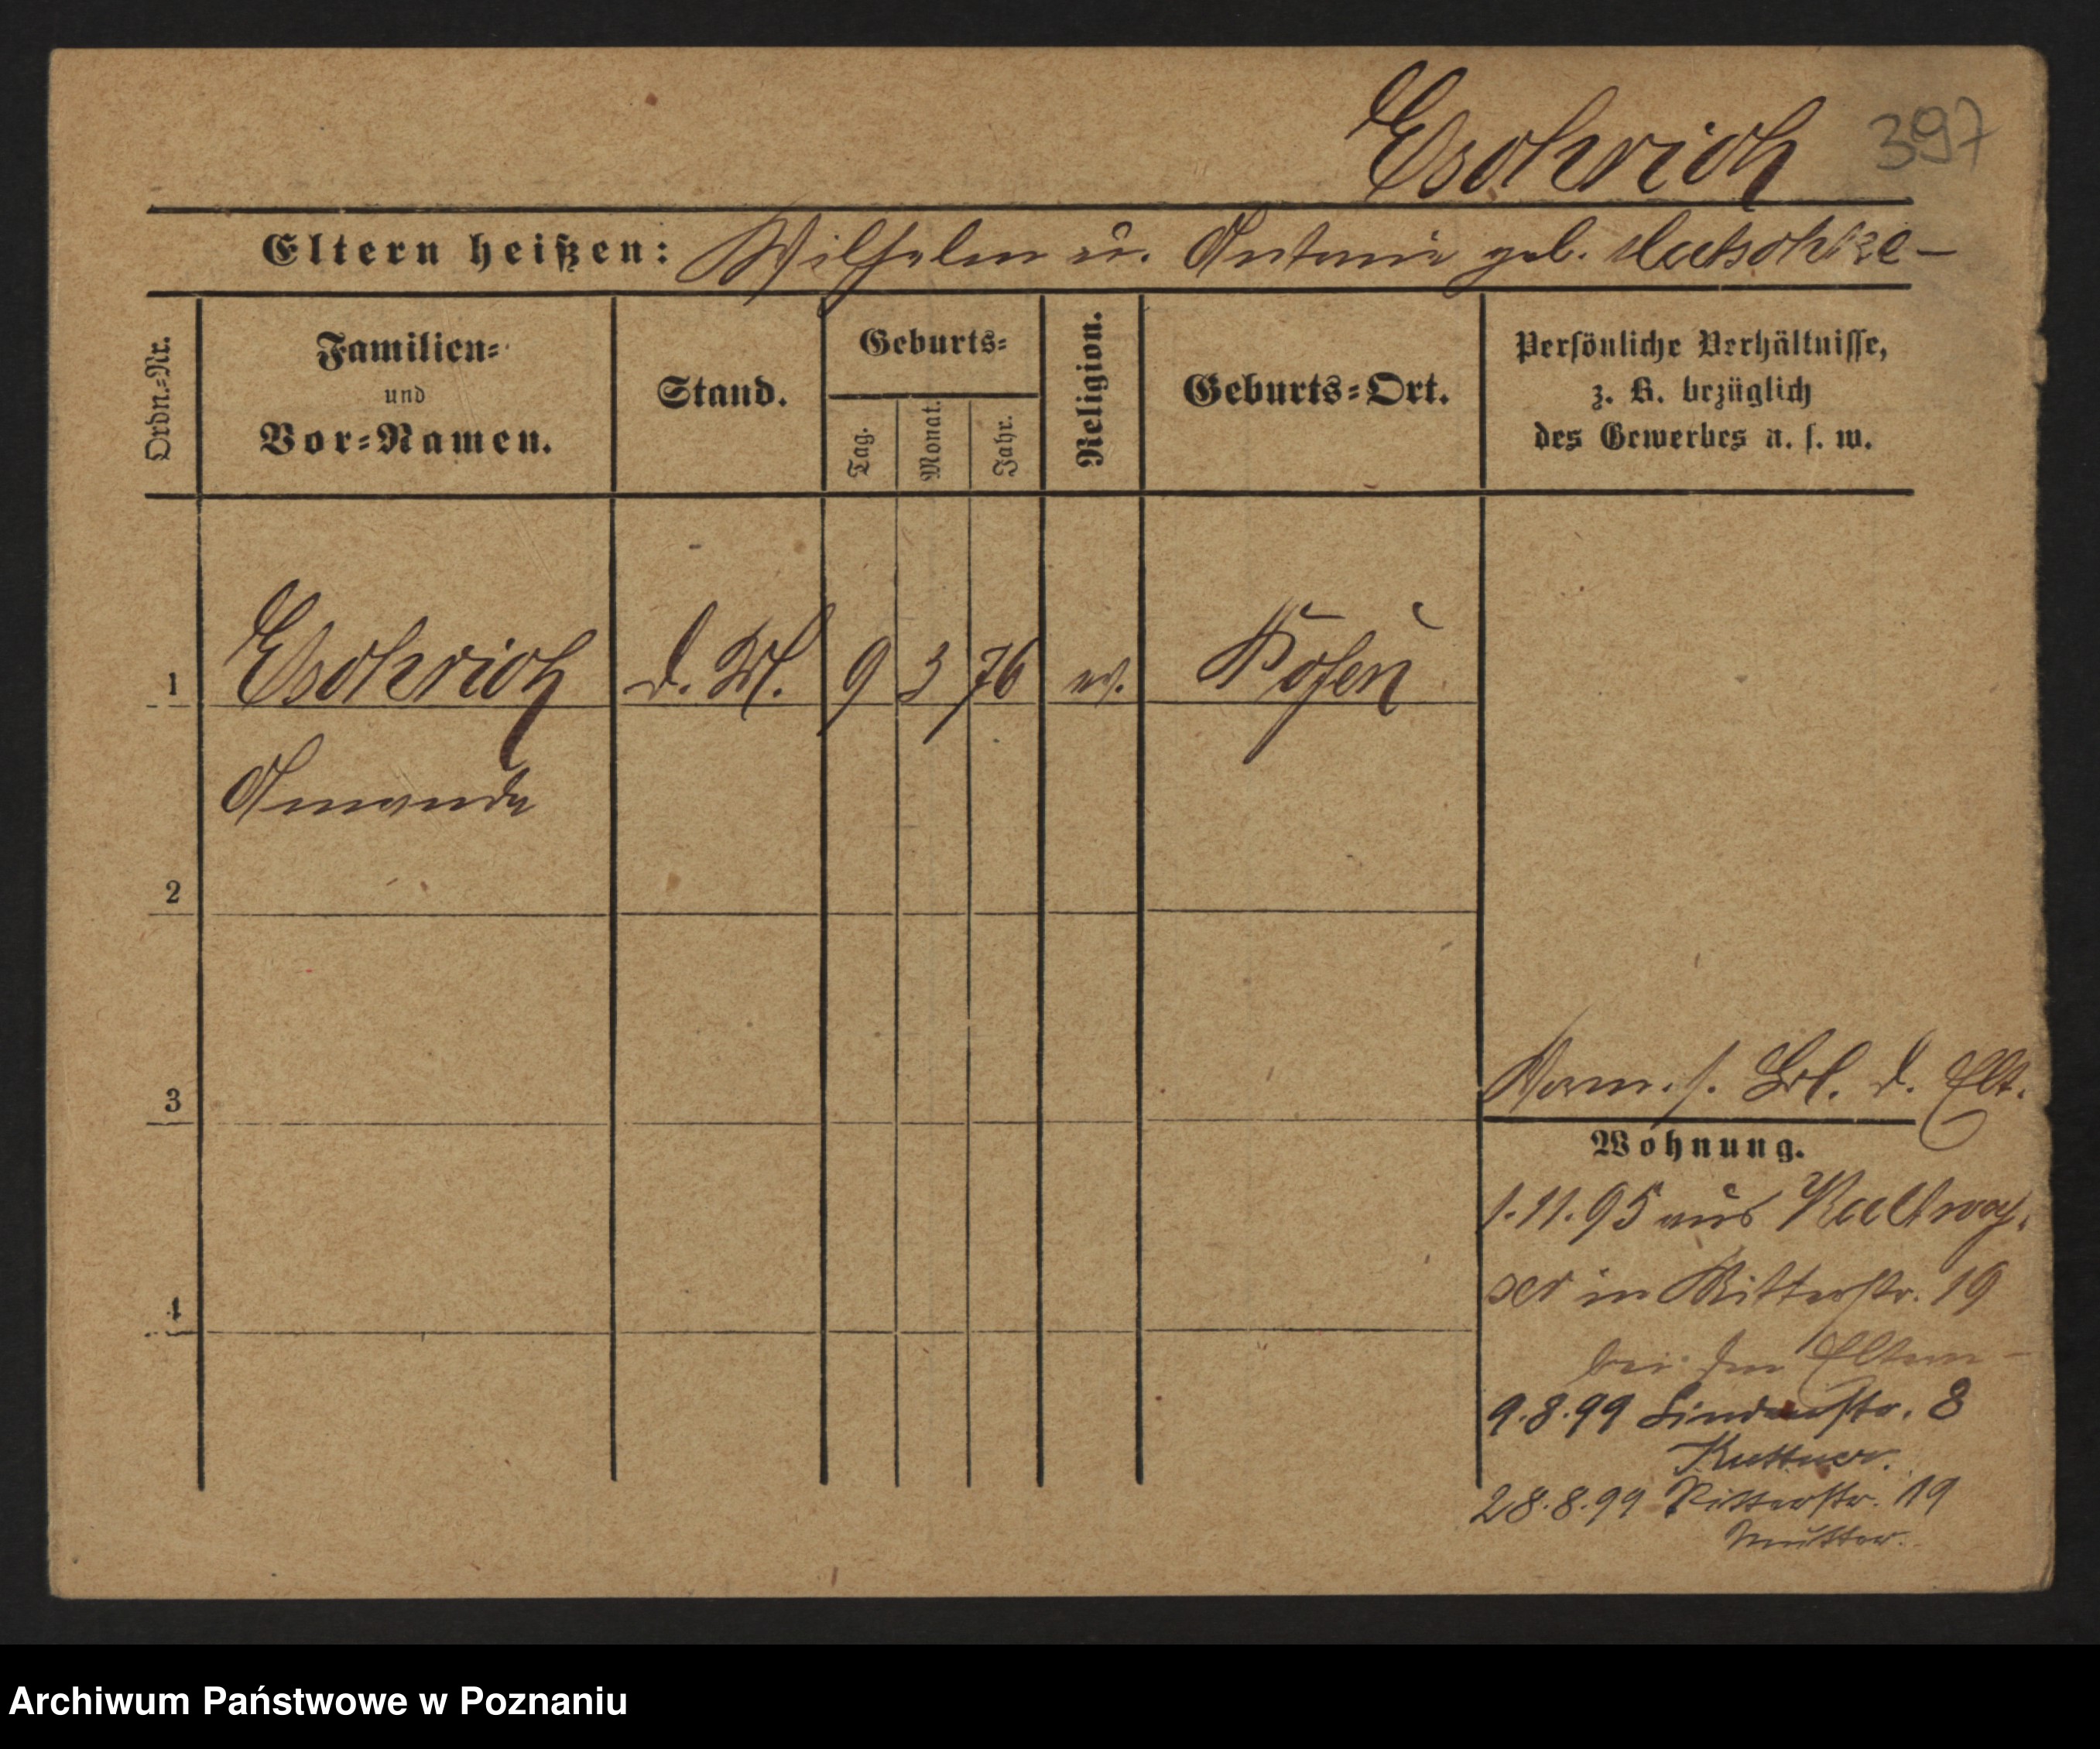 Eschrich 397
Eltern heißen: Wilhelm u. Antonie geb.
Ordn.=Nr.
Familien=
und
Vor=Namen.
Stand.
Geburts=
Tag.
Monat.
Jahr.
Religion.
Geburts=Ort.
Persönliche Verhältnisse,
z. B. bezüglich
des Gewerbes u. s. w.
1 Eschrich 9 3 76 ev. Posen
Amanda
2
3
4
Vorm. s. d. Elt.
Wohnung.
1.11.95 aus
in Ritterstr. 19
bei den Eltern
9.8.99 Lindenstr. 8
Kuttner.
28.8.99 Ritterstr. 19
Mutter.
Archiwum Państwowe w Poznaniu